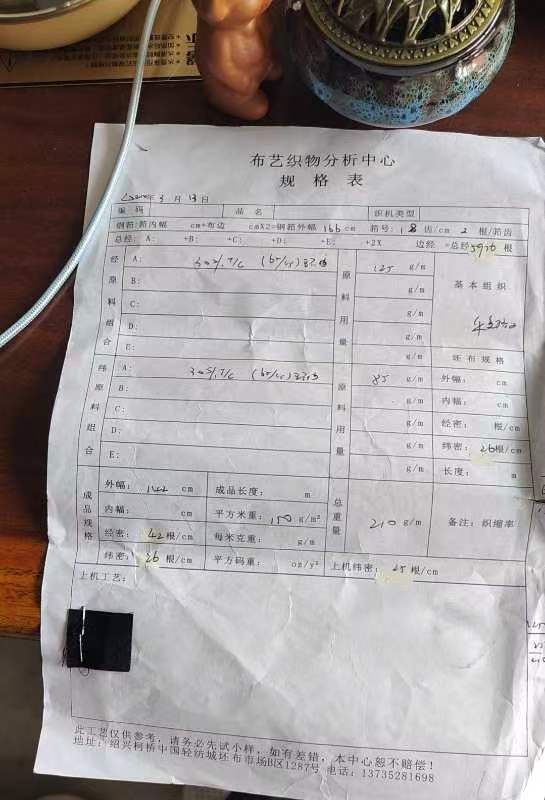 布艺织物分析中心
规格表
年 3 月 13 日
编码 品名 织机类型
钢筘:筘内幅 cm+布边 cmX2=钢筘外幅 166 cm 筘号: 18 齿/cm 2 根/筘齿
总经: A: +B: +C: +D: +E: +2X 边经 =总经5976 根
经原料组合 A: 30S/1 T/C (65/35) 原料用量 125 g/m 基本组织
B: g/m
C: g/m
D: g/m
E: g/m 坯布规格
纬原料组合 A: 30S/1 T/C (65/35) 原料用量 85 g/m 外幅: cm
B: g/m 内幅: cm
C: g/m 经密: 根/cm
D: g/m 纬密: 26根/cm
E: g/m 长度: m
成品规格 外幅: 142 cm 成品长度: m 总重量 210 g/m 备注: 织缩率
内幅: cm 平方米重: 150 g/m²
经密: 42根/cm 每米克重: g/m
纬密: 26 根/cm 平方码重: oz/y² 上机纬密: 25 根/cm
上机工艺:
此工艺仅供参考, 请务必先试小样, 如有差错, 本中心恕不赔偿!
地址: 绍兴柯桥中国轻纺城坯布市场B区1287号 电话: 13735281698